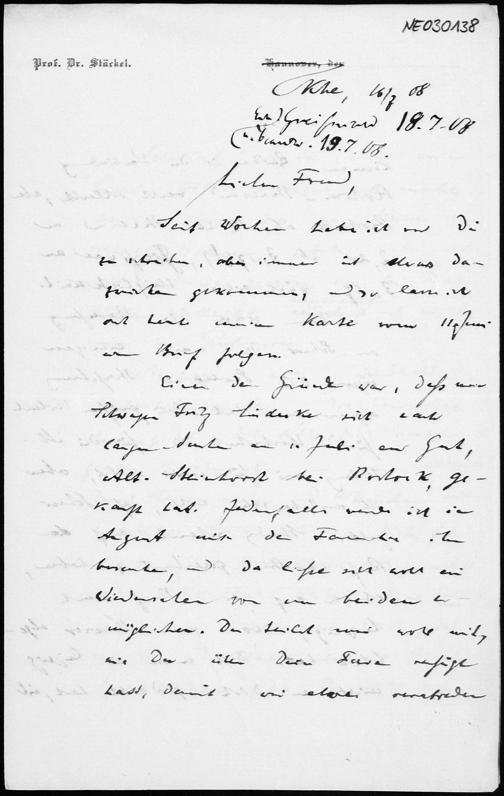 NE030138
Prof. Dr. Stäckel.
Hannover, den
Khe, 16/7 08
Greifswald 19.7.08
19.7.08.
Lieber Freund,
Seit Wochen habe ich vor Dir
zu schreiben, aber immer ist etwas da-
zwischen gekommen, und so lasse ich
erst heute meiner Karte vom 11/Juni
einen Brief folgen.
Einer der Gründe war, daß mein
Schwager Fritz sich nach
langem Suchen am Juli ein Gut,
Alt- bei Rostock, ge-
kauft hat. Jedenfalls werde ich im
August mit der Familie ihn
besuchen, und da ließe sich wohl ein
Wiedersehen von uns beiden er
möglichen. Du teilst mir wohl mit,
wie Du über Deine Ferien verfügt
hast, damit wir etwas verabreden